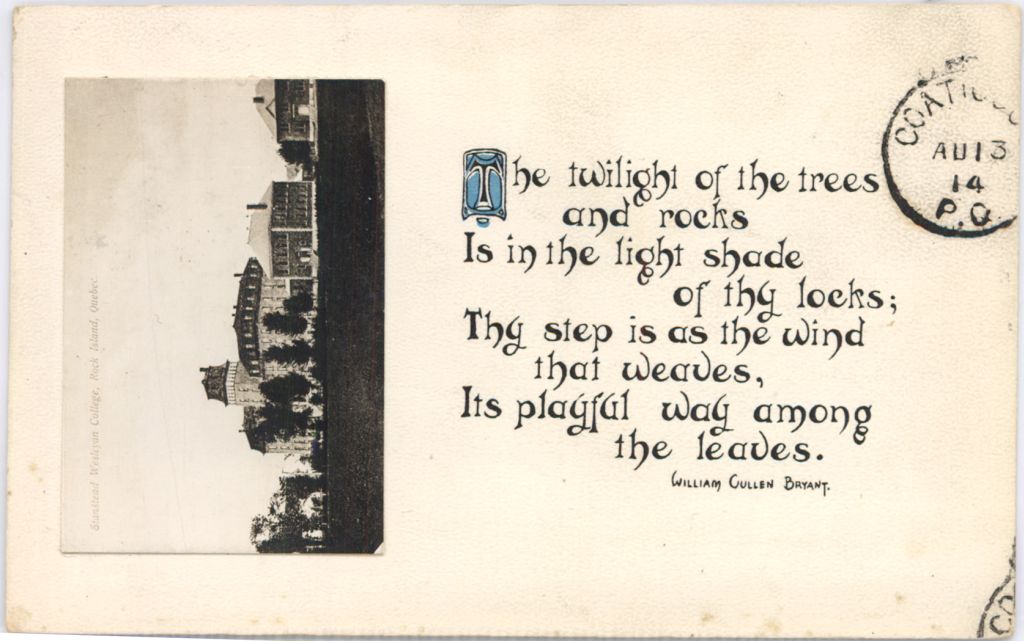 Stanstead Wesleyan College, Rock Island, Quebec
The twilight of the trees
and rocks
Is in the light shade
of thy locks;
Thy step is as the wind
that weaves,
Its playful way among
the leaves.
WILLIAM CULLEN BRYANT.
AU 13
14
P.Q